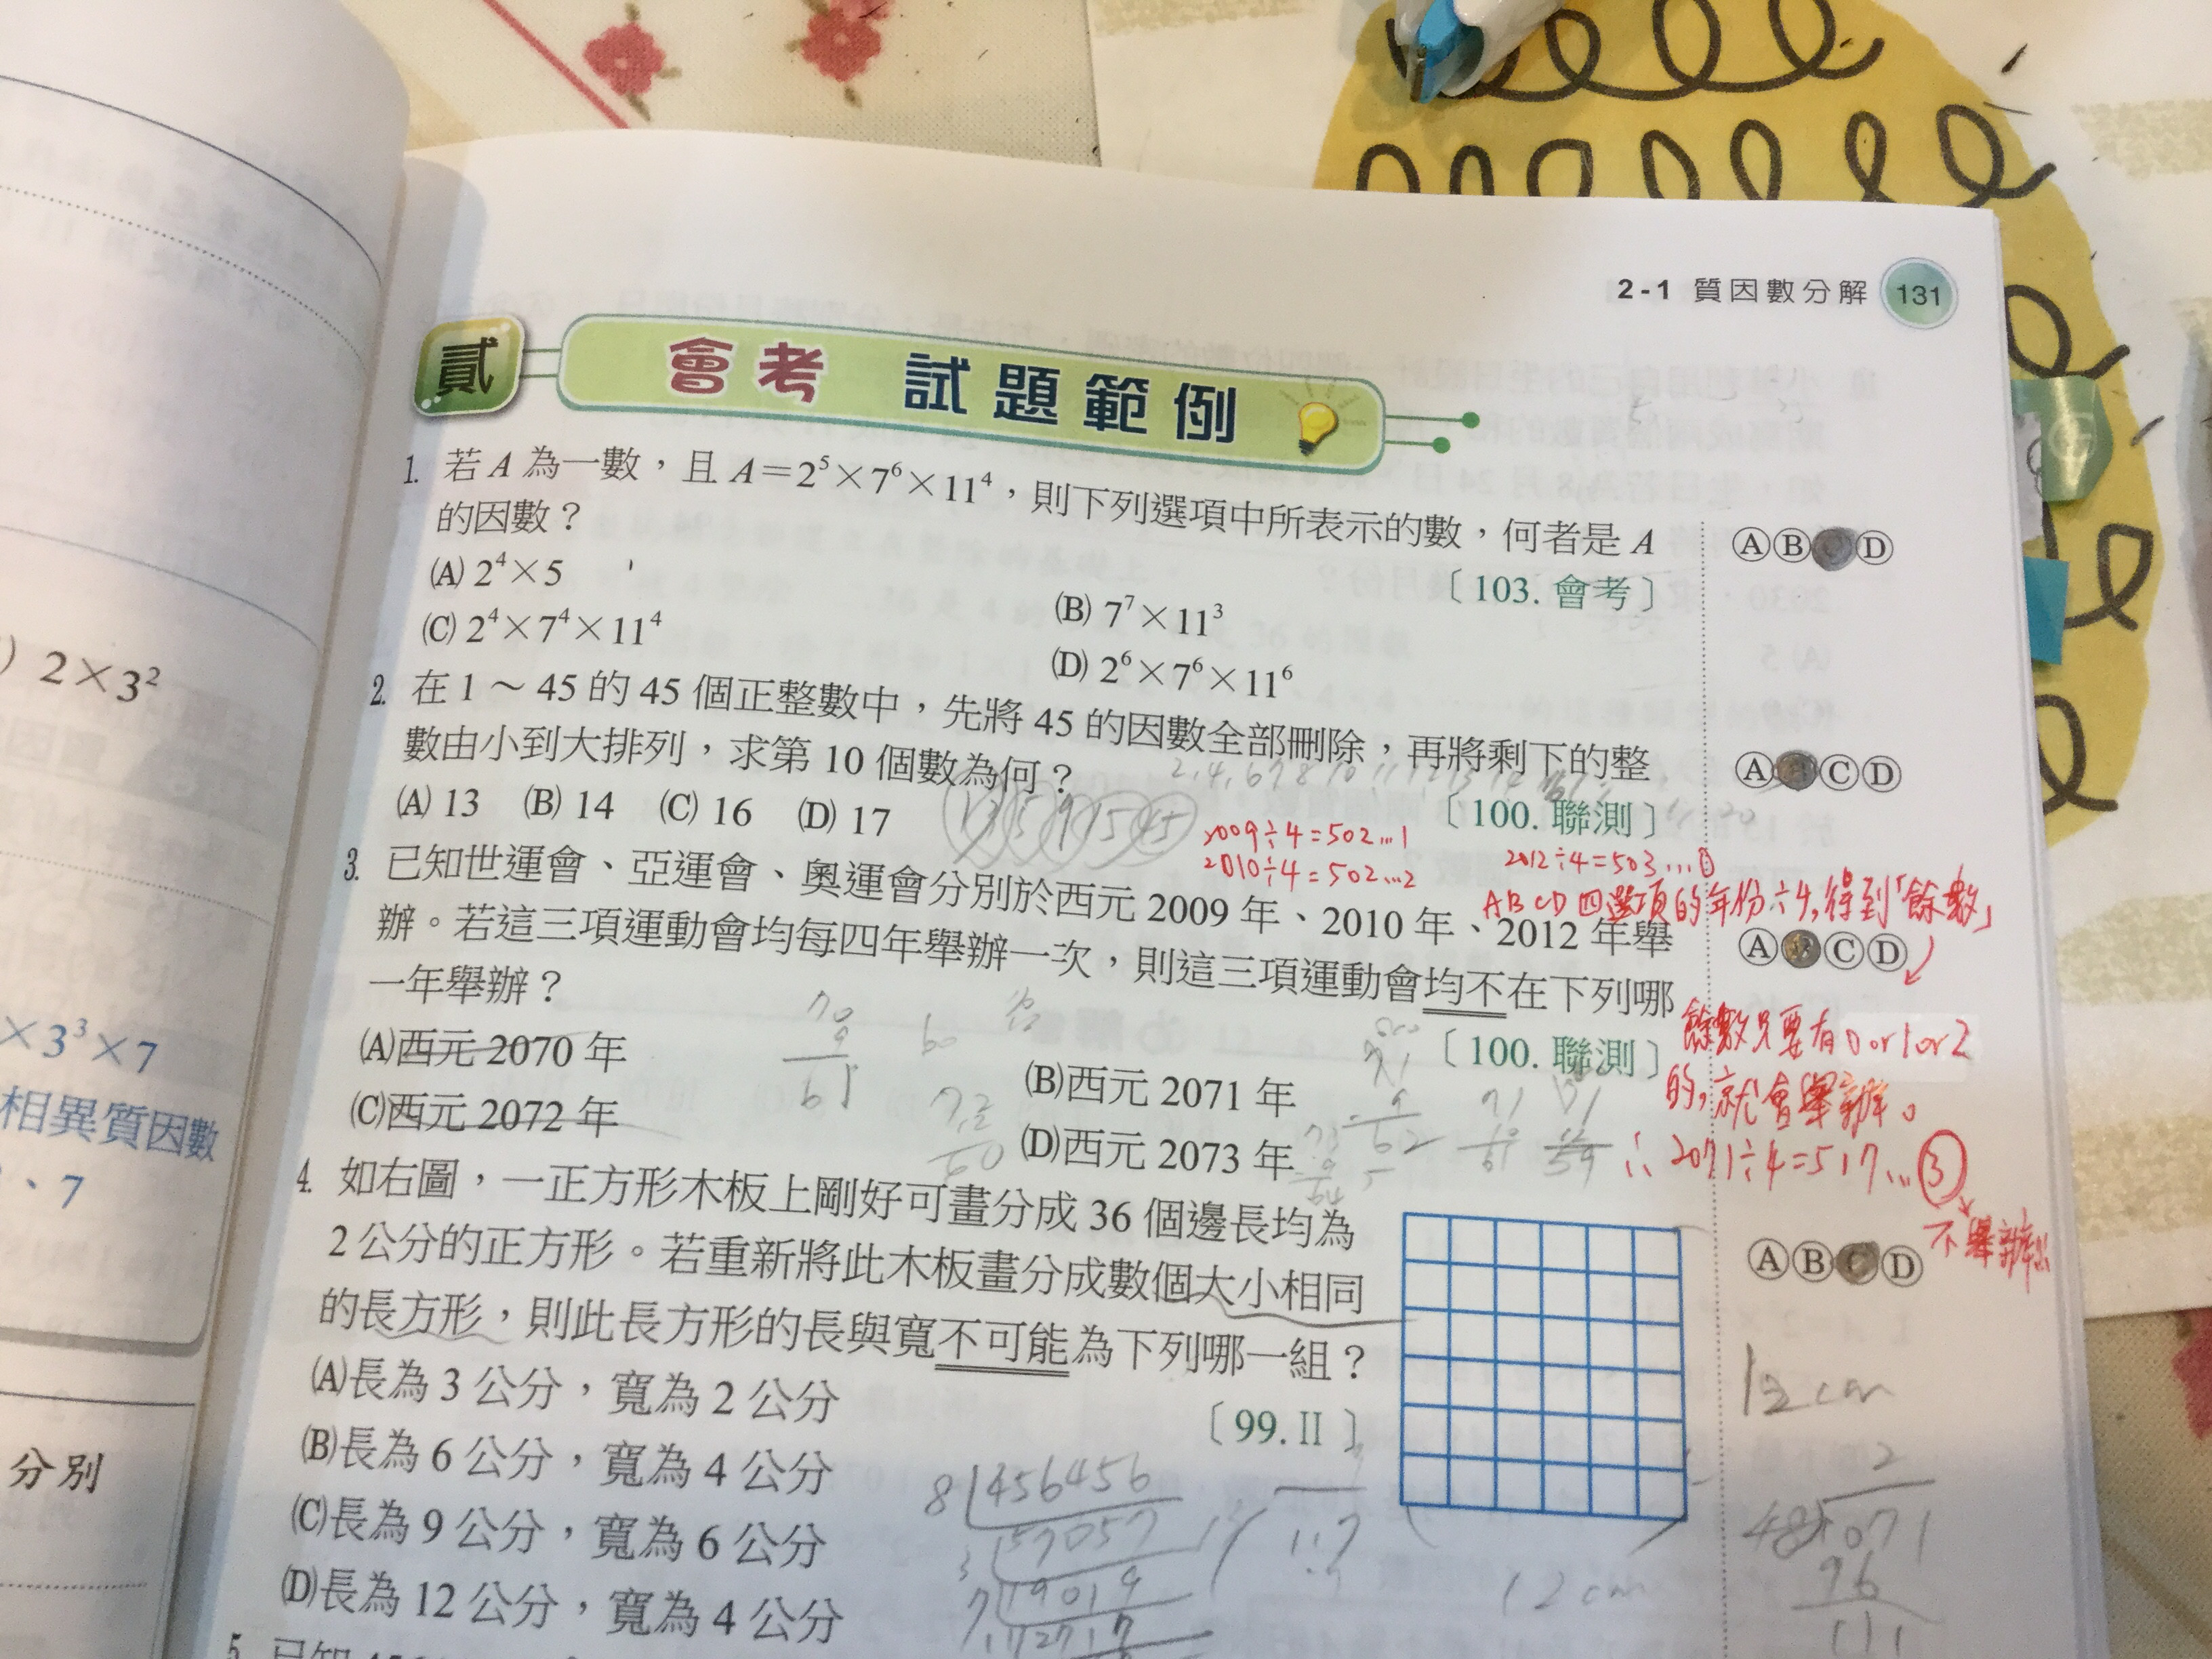 2-1 質因數分解 131
貳 會考 試題範例
1. 若 A 為一數，且 A＝2⁵×7⁶×11⁴，則下列選項中所表示的數，何者是 A
的因數？
〔103. 會考〕
ⒶⒷⒹ
(A) 2⁴×5
(B) 7⁷×11³
(C) 2⁴×7⁴×11⁴
(D) 2⁶×7⁶×11⁶
2. 在 1～45 的 45 個正整數中，先將 45 的因數全部刪除，再將剩下的整
數由小到大排列，求第 10 個數為何？
〔100. 聯測〕
ⒶⒸⒹ
(A) 13 (B) 14 (C) 16 (D) 17
1 3 5 9 15 45
2009÷4=502...1
2010÷4=502...2
2012÷4=503...0
ABCD四選項的年份÷4,得到「餘數」
3. 已知世運會、亞運會、奧運會分別於西元 2009 年、2010 年、2012 年舉
辦。若這三項運動會均每四年舉辦一次，則這三項運動會均不在下列哪
一年舉辦？
〔100. 聯測〕
ⒶⒷⒸⒹ
(A)西元 2070 年
(B)西元 2071 年
(C)西元 2072 年
(D)西元 2073 年
餘數只要有0 or 1 or 2
的,就會舉辦。
∴ 2071÷4=517...③
不舉辦
4. 如右圖，一正方形木板上剛好可畫分成 36 個邊長均為
2 公分的正方形。若重新將此木板畫分成數個大小相同
的長方形，則此長方形的長與寬不可能為下列哪一組？
〔99.Ⅱ〕
ⒶⒷⒸⒹ
(A)長為 3 公分，寬為 2 公分
(B)長為 6 公分，寬為 4 公分
(C)長為 9 公分，寬為 6 公分
(D)長為 12 公分，寬為 4 公分
12 cm
12 cm
8 456456
3 57057
7 19019
2717
) 2×3²
×3³×7
相異質因數
、7
分別
5.